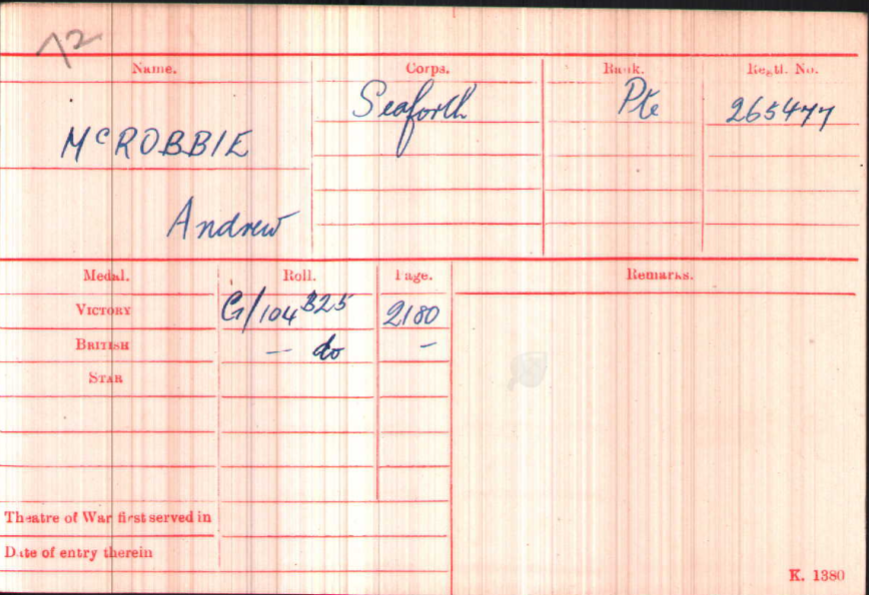 12
Name. Corps. Rank. Regtl. No.
McROBBIE Seaforth Pte 265477
Andrew
Medal. Roll. Page. Remarks.
VICTORY G/104 B25 2180
BRITISH — do —
STAR
Theatre of War first served in
Date of entry therein
K. 1380